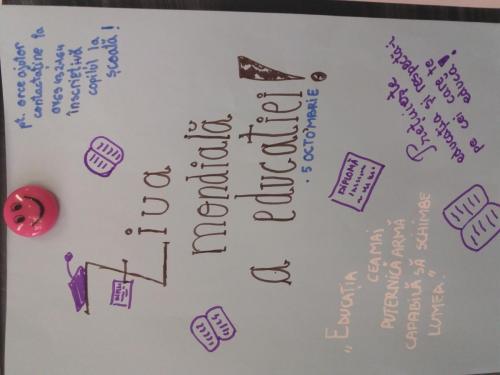 Ziua
mondială
a educației!
• 5 OCTOMBRIE •
pt. orce ajutor
contactați-ne la
înscrieți-vă
copilul la
școală!
Prețuiește
educația și respectă-i
pe cei care te
educă!
DIPLOMĂ
„EDUCAȚIA
CEA MAI
PUTERNICĂ ARMĂ
CAPABILĂ SĂ SCHIMBE
LUMEA."